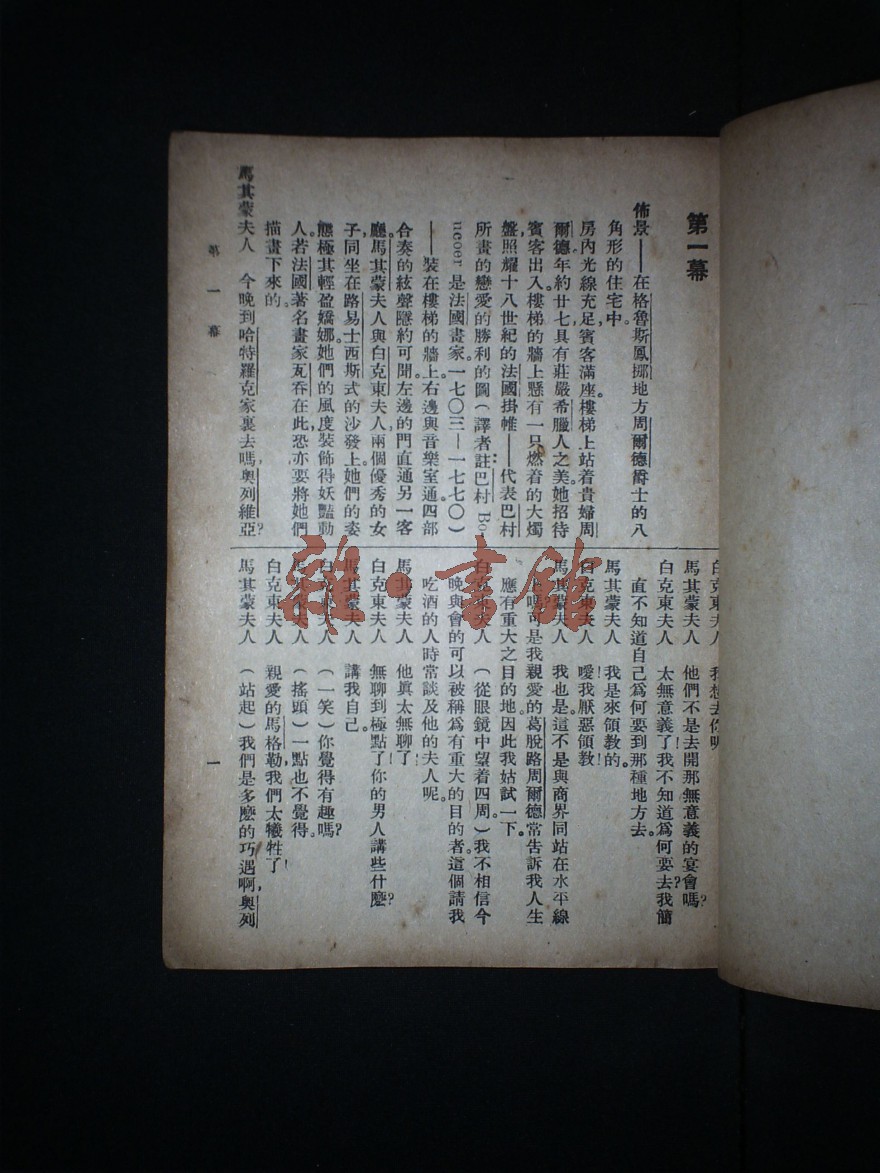 第一幕
佈景——在格魯斯鳳挪地方周爾德爵士的八
角形的住宅中。
房內光線充足，賓客滿座。樓梯上站着貴婦周
爾德年約廿七具有莊嚴希臘人之美。她招待
賓客出入樓梯的牆上懸有一只燃着的大燭
盤照耀十八世紀的法國掛帷——代表巴村
所畫的戀愛的勝利的圖（譯者註：巴村 Bo
ucoer 是法國畫家。一七〇三—一七七〇）
——裝在樓梯的牆上。右邊與音樂室通。四部
合奏的絃聲隱約可聞。左邊的門直通另一客
廳。馬其蒙夫人與白克東夫人兩個優秀的女
子同坐在路易士西斯式的沙發上。她們的姿
態極其輕盈嬌娜。她們的風度裝飾得妖豔動
人。若法國著名畫家瓦吞在此，恐亦要將她們
描畫下來的。
馬其蒙夫人　今晚到哈特羅克家裏去嗎，奧列維亞？
白克東夫人　我想去你呢
馬其蒙夫人　他們不是去開那無意義的宴會嗎？
白克東夫人　太無意義了！我不知道爲何要去？我簡
直不知道自己爲何要到那種地方去。
馬其蒙夫人　我是來領教的。
白克東夫人　噯！我厭惡領教！
馬其蒙夫人　我也是。這不是與商界同站在水平線
上嗎？可是我親愛的葛脫路周爾德常告訴我人生
應有重大之目的地。因此我姑試一下。
白克東夫人　（從眼鏡中望着四周）我不相信今
晚與會的可以被稱爲有重大的目的者。這個請我
吃酒的人時常談及他的夫人呢。
馬其蒙夫人　他眞太無聊了！
白克東夫人　無聊到極點了！你的男人講些什麼？
馬其蒙夫人　講我自己。
白克東夫人　（一笑）你覺得有趣嗎？
馬其蒙夫人　（搖頭）一點也不覺得。
白克東夫人　親愛的馬格勒我們太犧牲了！
馬其蒙夫人　（站起）我們是多麼的巧遇啊，奧列
第一幕
一
雜·書館